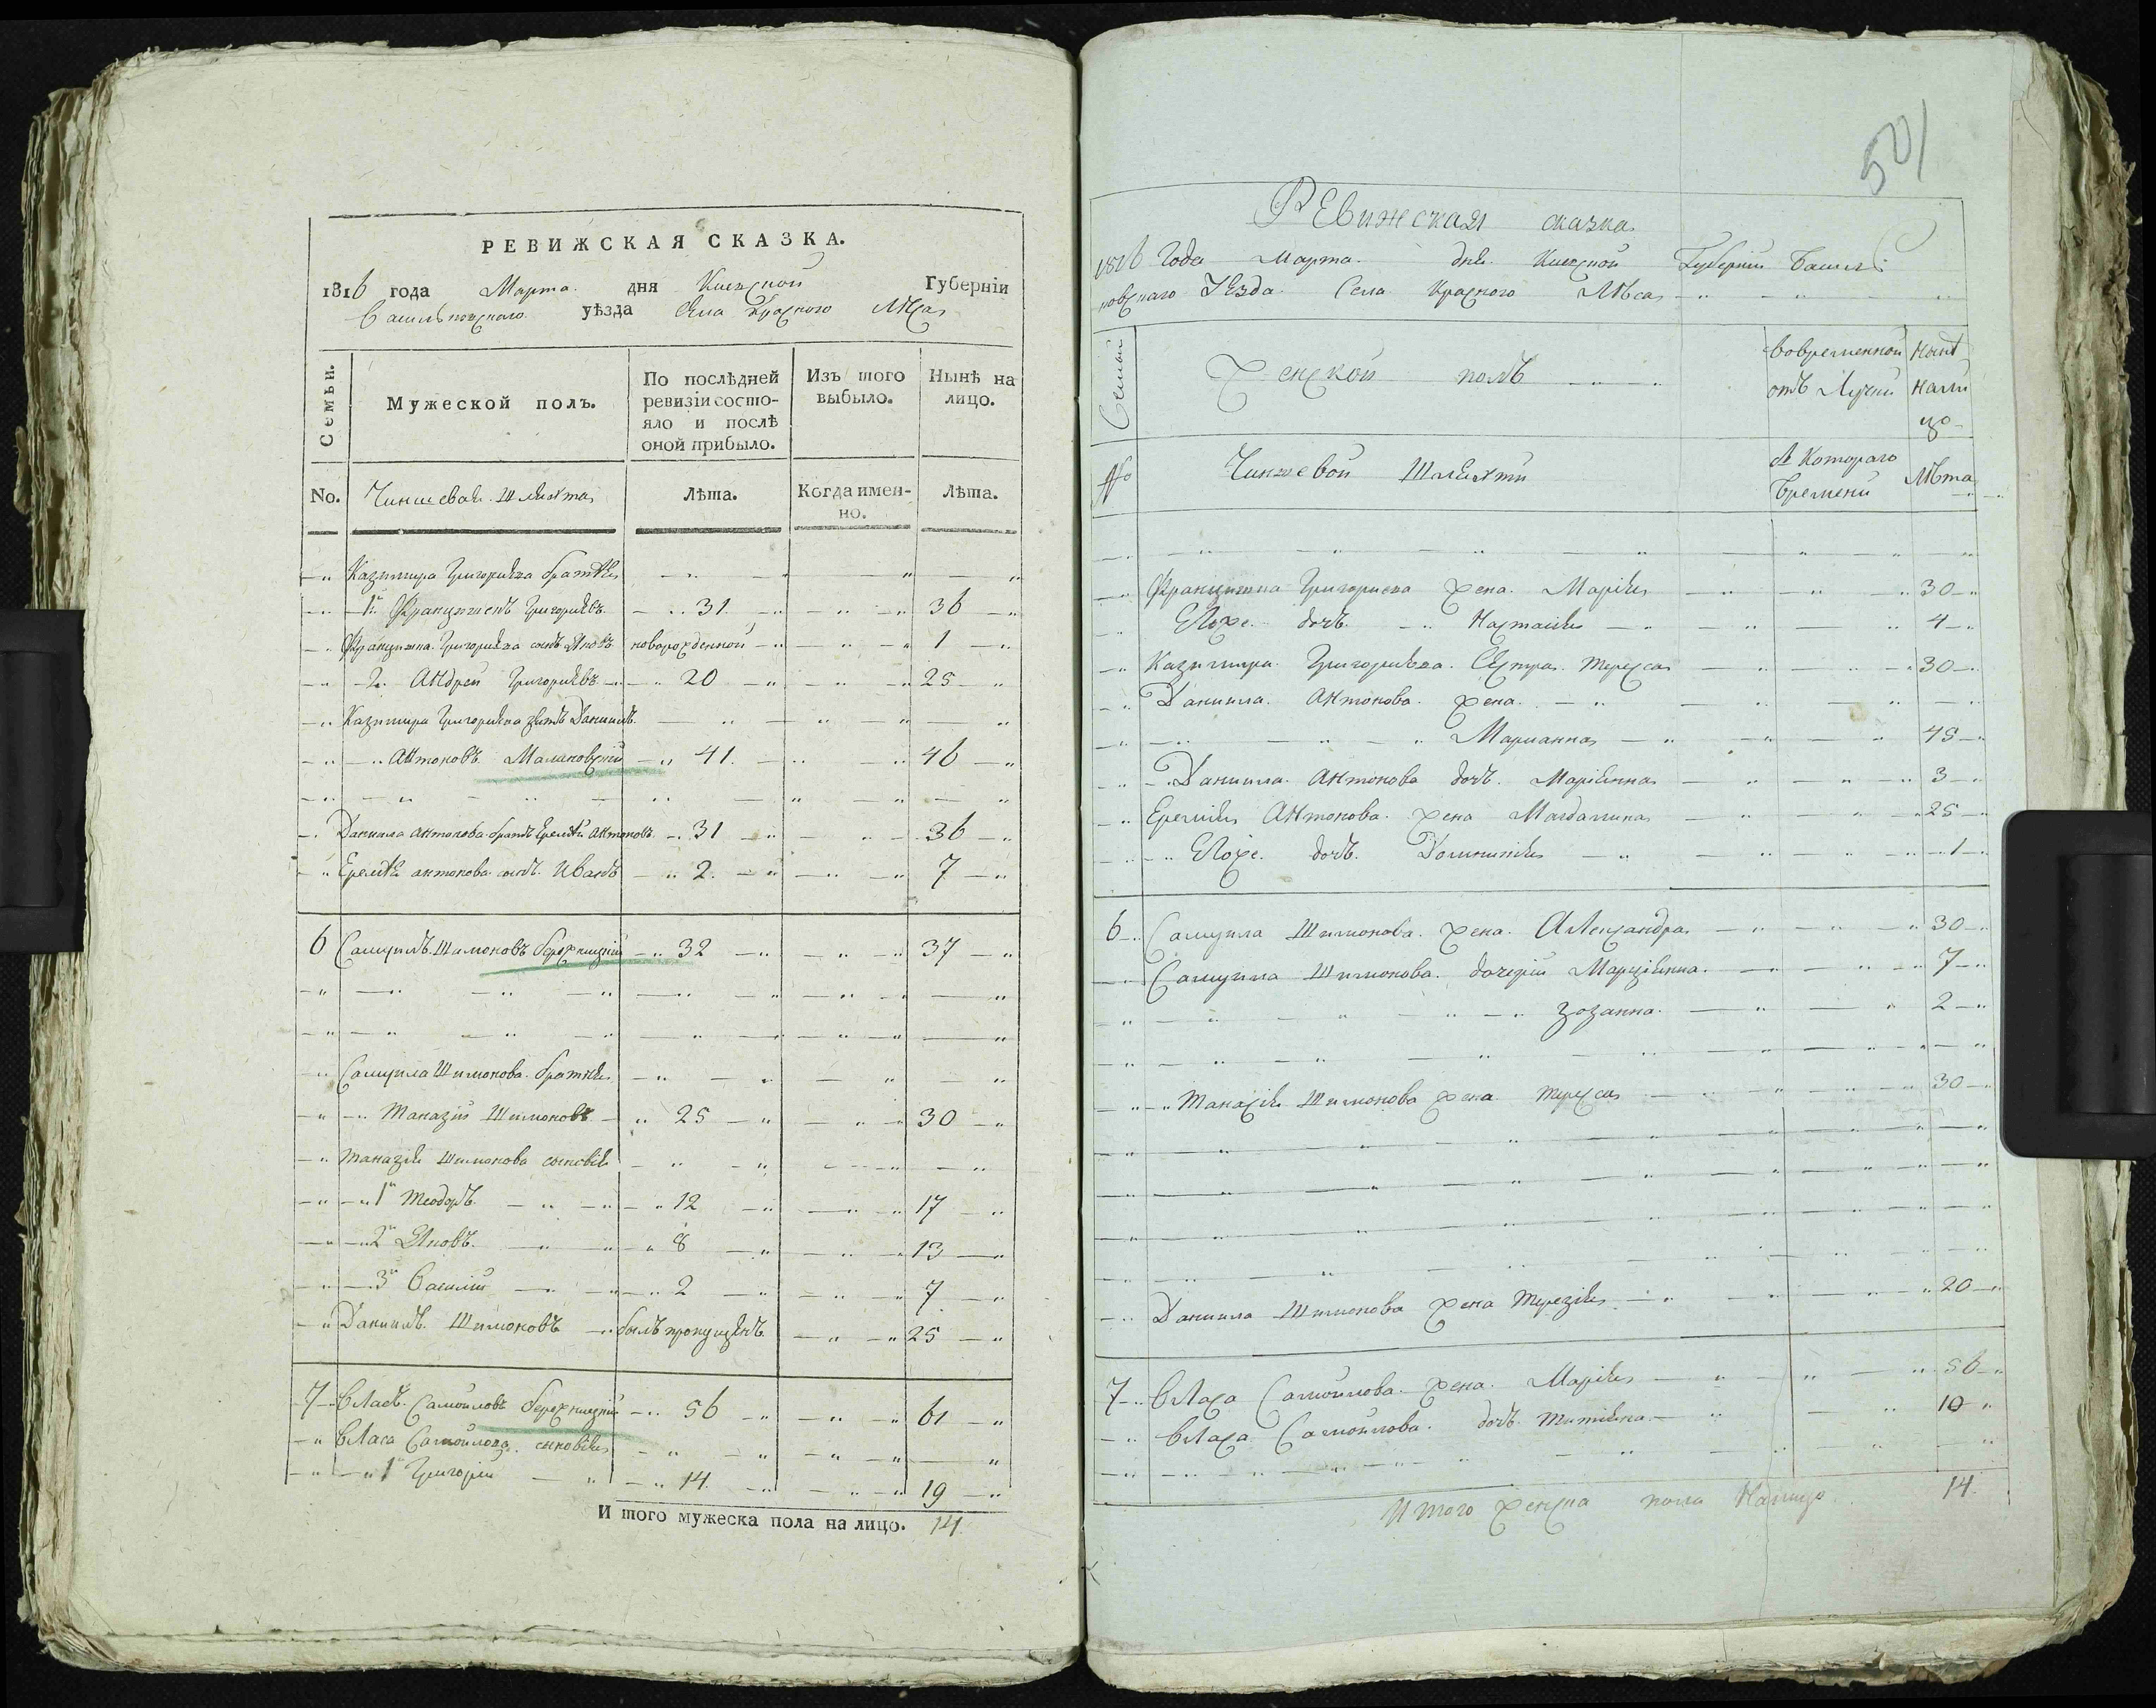 РЕВИЖСКАЯ СКАЗКА.
1816 года Марта дня Киевской Губерніи
Васильковскаго уѣзда Села Красного Лѣса
Семьи.
Мужеской полъ.
По послѣдней ревизіи состо-
яло и послѣ
оной прибыло.
Изъ того
выбыло.
Нынѣ на
лицо.
No. Чиншевая Шляхта Лѣта. Когда имен-
но. Лѣта.
Казимира Григориева братья
1й Францишекъ Григориевъ 31 36
Францишка Григориева сынъ Яковъ новорожденной 1
2й Андрей Григориевъ 20 25
Казимира Григориева зять Даниилъ
Антоновъ Малаховский 41 46
Даниила Антонова братъ Еремѣй Антоновъ 31 36
Еремѣя Антонова сынъ Иванъ 2 7
6 Самуилъ Шимоновъ Бережницкий 32 37
Самуила Шимонова братья
Таназий Шимоновъ 25 30
Таназия Шимонова сыновья
1й Теодоръ 12 17
2й Яковъ 8 13
3й Василий 2 7
Даниилъ Шимоновъ былъ пропущенъ 25
7 Власъ Самойловъ Бережницкий 56 61
Власа Самойлова сыновья
1й Григорий 14 19
И того мужеска пола на лицо. 14
501
Ревижская сказка
1816 Года Марта дня Киевской Губернии Василь
ковскаго Уезда Села Красного Лѣса
Семьи
Женской полъ
Вовременной
отлучки
Нынѣ
нали
цо
№ Чиншевой Шляхти
Съ Котораго
Времени
Лѣта
Францишка Григориева жена Мария 30
Егоже дочь Настасия 4
Казимира Григориева Сестра Тереса 30
Даниила Антонова жена
Марианна 45
Даниила Антонова дочь Марианна 3
Еремия Антонова жена Магдалина 25
Егоже дочь Доминикия 1
6 Самуила Шимонова жена Александра 30
Самуила Шимонова дочерии Марциянна 7
Зозанна 2
Танасия Шимонова жена Тереса 30
Даниила Шимонова жена Терезия 20
7 Власа Самойлова жена Мария 56
Власа Самойлова дочь Татияна 10
Итого женска пола Налицо 14